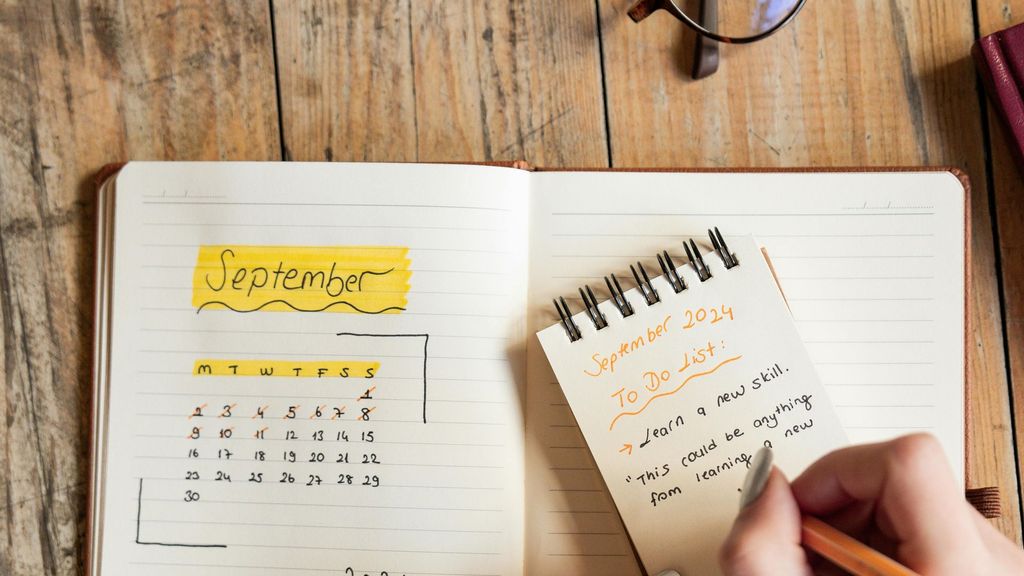 September
M T W T F S S
1
2 3 4 5 6 7 8
9 10 11 12 13 14 15
16 17 18 19 20 21 22
23 24 25 26 27 28 29
30
September 2024
To Do List:
→ Learn a new skill.
"This could be anything
from learning a new